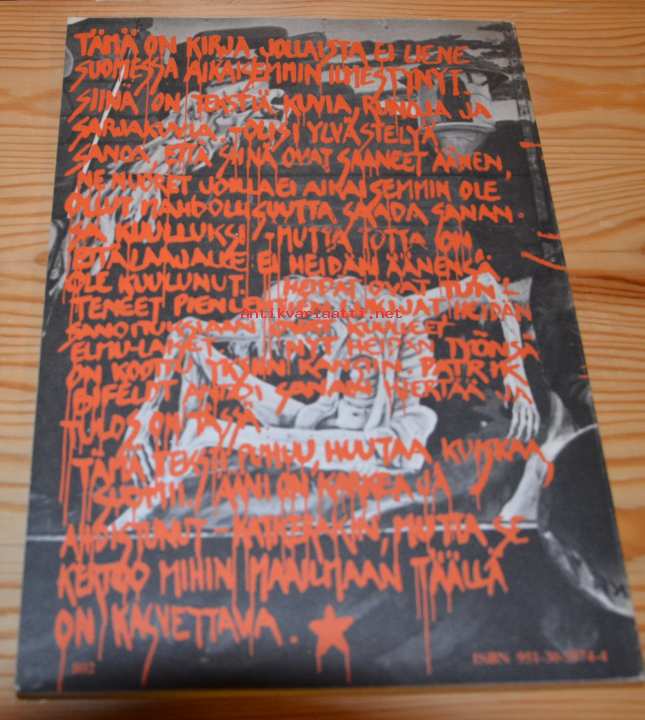 TÄMÄ ON KIRJA JOLLAISTA EI LIENE
SUOMESSA AIKAISEMMIN ILMESTYNYT.
SIINÄ ON TEKSTIÄ, KUVIA, RUNOJA JA
SARJAKUVIA. TOLISI YLVÄSTELYÄ
SANOA, ETTÄ SIINÄ OVAT SAANEET ÄÄNEN,
NE NUORET JOILLA EI AIKAISEMMIN OLE
OLLUT MAHDOLLISUUTTA SAADA SANAN-
SA KUULLUKSI - MUTTA TOTTA ON
ETTÄ LAAJALLE EI HEIDÄN ÄÄNENSÄ
OLE KUULUNUT. HEIDÄT OVAT TUN-
TENEET PIENLEHTIEN LUKIJAT HEIDÄN
SANOITUKSIAAN OVAT KUULLEET
ELMU-LAISET. NYT HEIDÄN TYÖNSÄ
ON KOOTTU YKSIIN KANSIIN. PATRIK
ANTOI SANANSA JA
TULOS ON TÄSSÄ.
TÄMÄ TEKSTI PUHUU, HUUTAA KUISKAA,
ÄÄNI ON KARKEA JA
AHDISTUNUT KATKERAKIN, MUTTA SE
KERTOO MIHIN MAAILMAAN TÄÄLLÄ
ON KASVETTAVA.
antikvariaatti.net
ISBN 951-30-